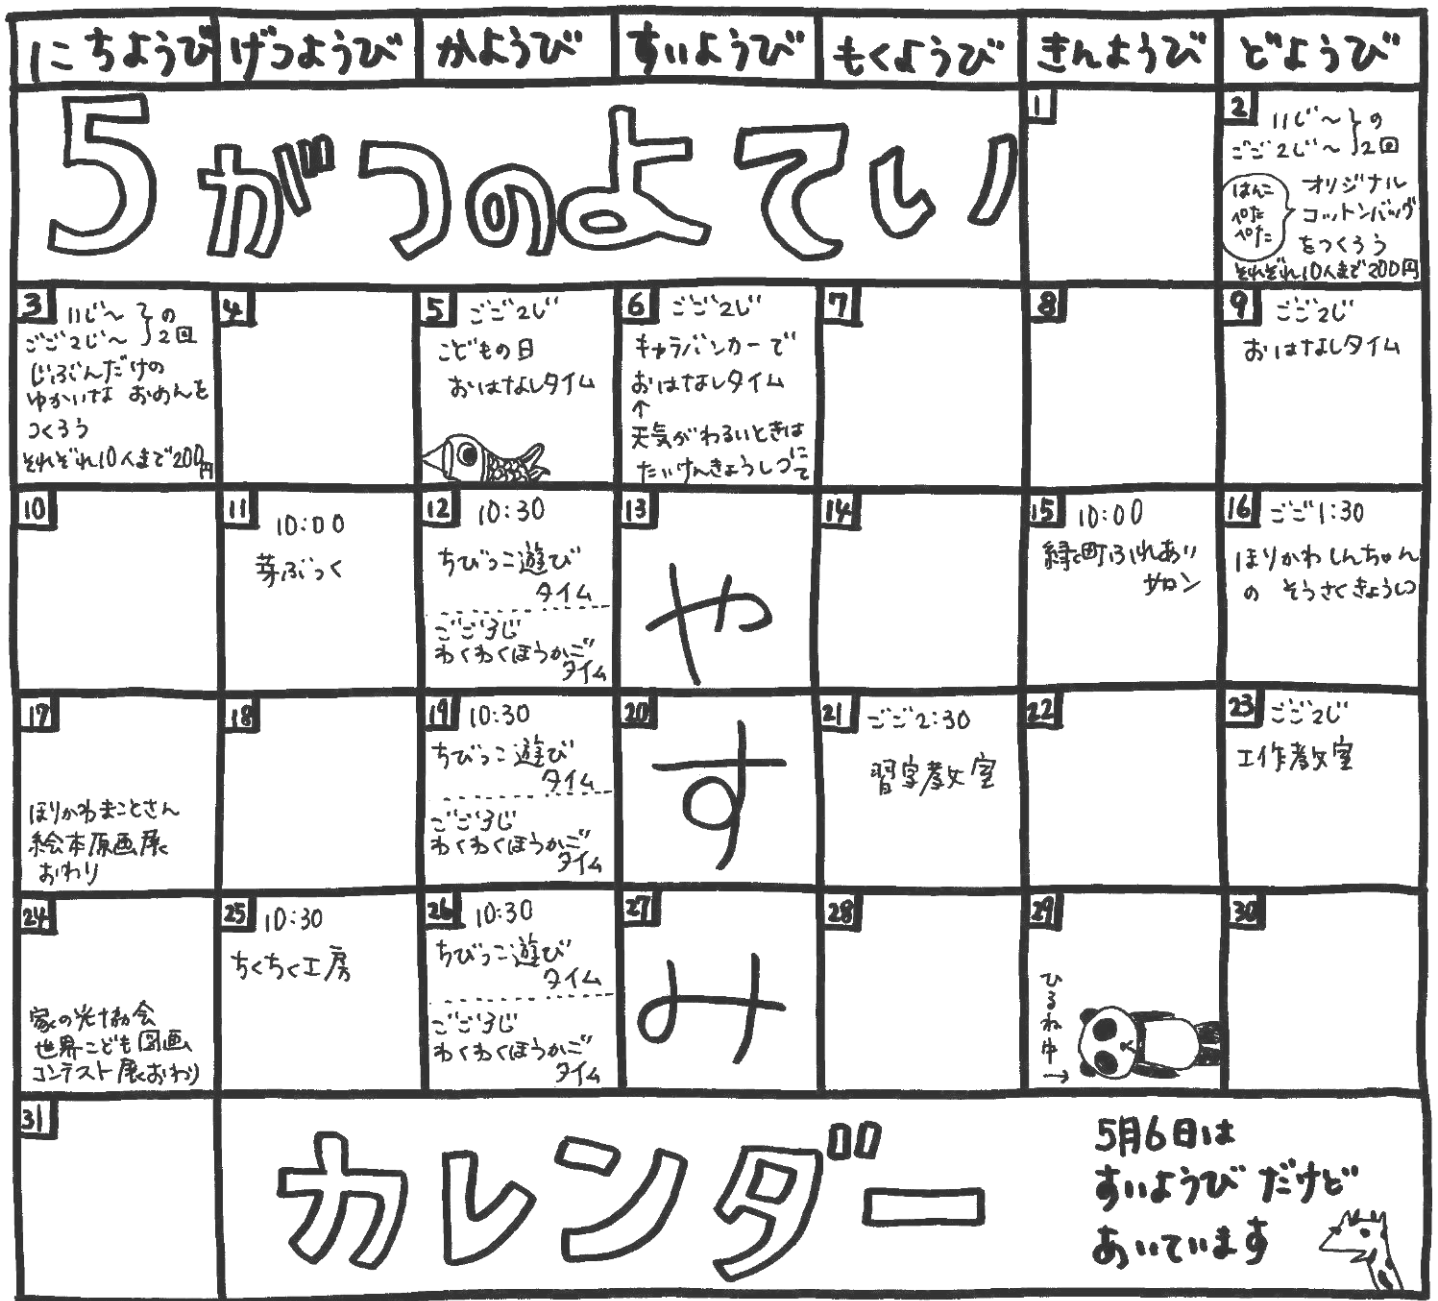 にちようび げつようび かようび すいようび もくようび きんようび どようび
5がつのよてい
1
2
11じ〜
ごご2じ〜
の
2回
はんこ
ぺた
ぺた
オリジナル
コットンバッグ
をつくろう
それぞれ10人まで200円
3
11じ〜
ごご2じ〜
の
2回
じぶんだけの
ゆかいな おめんを
つくろう
それぞれ10人まで200円
4
5 ごご2じ
こどもの日
おはなしタイム
6 ごご2じ
キャラバンカーで
おはなしタイム
↑
天気がわるいときは
たいけんきょうしつにて
7
8
9 ごご2じ
おはなしタイム
10
11 10:00
芽ぶっく
12 10:30
ちびっこ遊び
タイム
ごご3じ
わくわくほうかご
タイム
13
や
14
15 10:00
緑町ふれあい
サロン
16 ごご1:30
ほりかわしんちゃん
の そうさくきょうしつ
17
ほりかわまことさん
絵本原画展
おわり
18
19 10:30
ちびっこ遊び
タイム
ごご3じ
わくわくほうかご
タイム
20
す
21 ごご2:30
習字教室
22
23 ごご2じ
工作教室
24
家の光協会
世界こども図画
コンテスト展おわり
25 10:30
ちくちく工房
26 10:30
ちびっこ遊び
タイム
ごご3じ
わくわくほうかご
タイム
27
み
28
29
ひるね中→
30
31
カレンダー
5月6日は
すいようびだけど
あいています